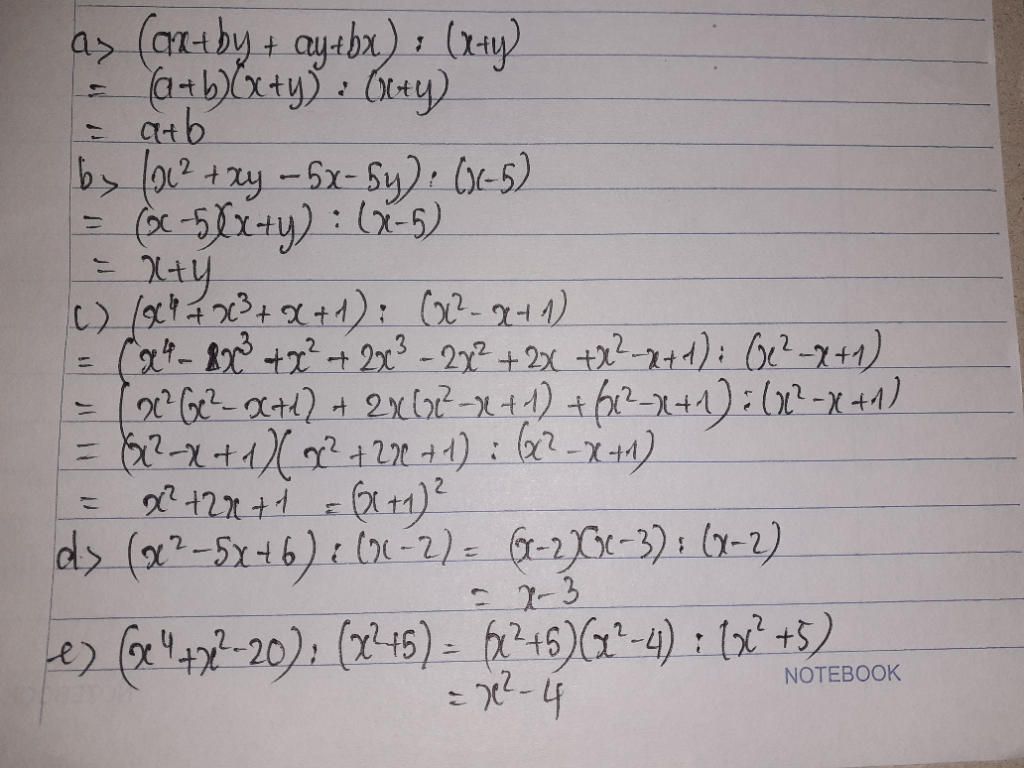 a> (ax+by + ay+bx) : (x+y)
= (a+b)(x+y) : (x+y)
= a+b
b> (x² + xy - 5x - 5y) : (x-5)
= (x-5)(x+y) : (x-5)
= x+y
c) (x⁴ + x³ + x + 1) : (x² - x + 1)
= (x⁴ - x³ + x² + 2x³ - 2x² + 2x + x² - x + 1) : (x² - x + 1)
= (x²(x² - x + 1) + 2x(x² - x + 1) + (x² - x + 1) : (x² - x + 1)
= (x² - x + 1)(x² + 2x + 1) : (x² - x + 1)
= x² + 2x + 1 = (x+1)²
d> (x² - 5x + 6) : (x - 2) = (x-2)(x-3) : (x-2)
= x-3
e) (x⁴ + x² - 20) : (x² + 5) = (x² + 5)(x² - 4) : (x² + 5)
= x² - 4
NOTEBOOK